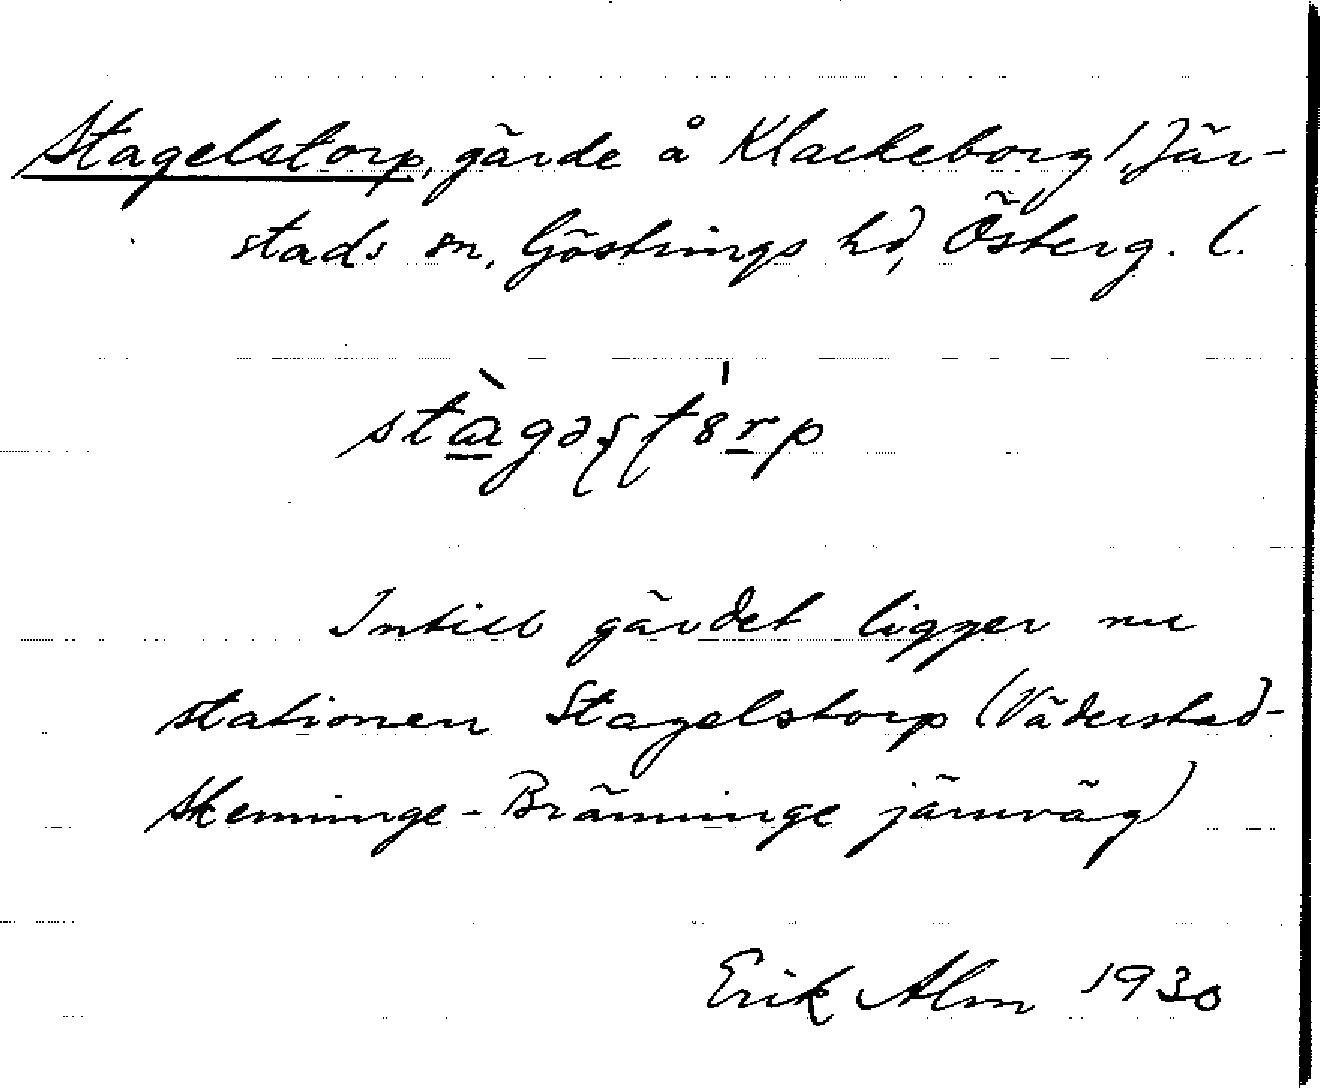 Stagelstorp, gärde å Klackeborg, Jär-
stads sn, Göstrings hd, Österg. l.
Intill gärdet ligger nu
stationen Stagelstorp (Väderstad-
Skenninge-Bränninge järnväg)
Erik Alm 1930